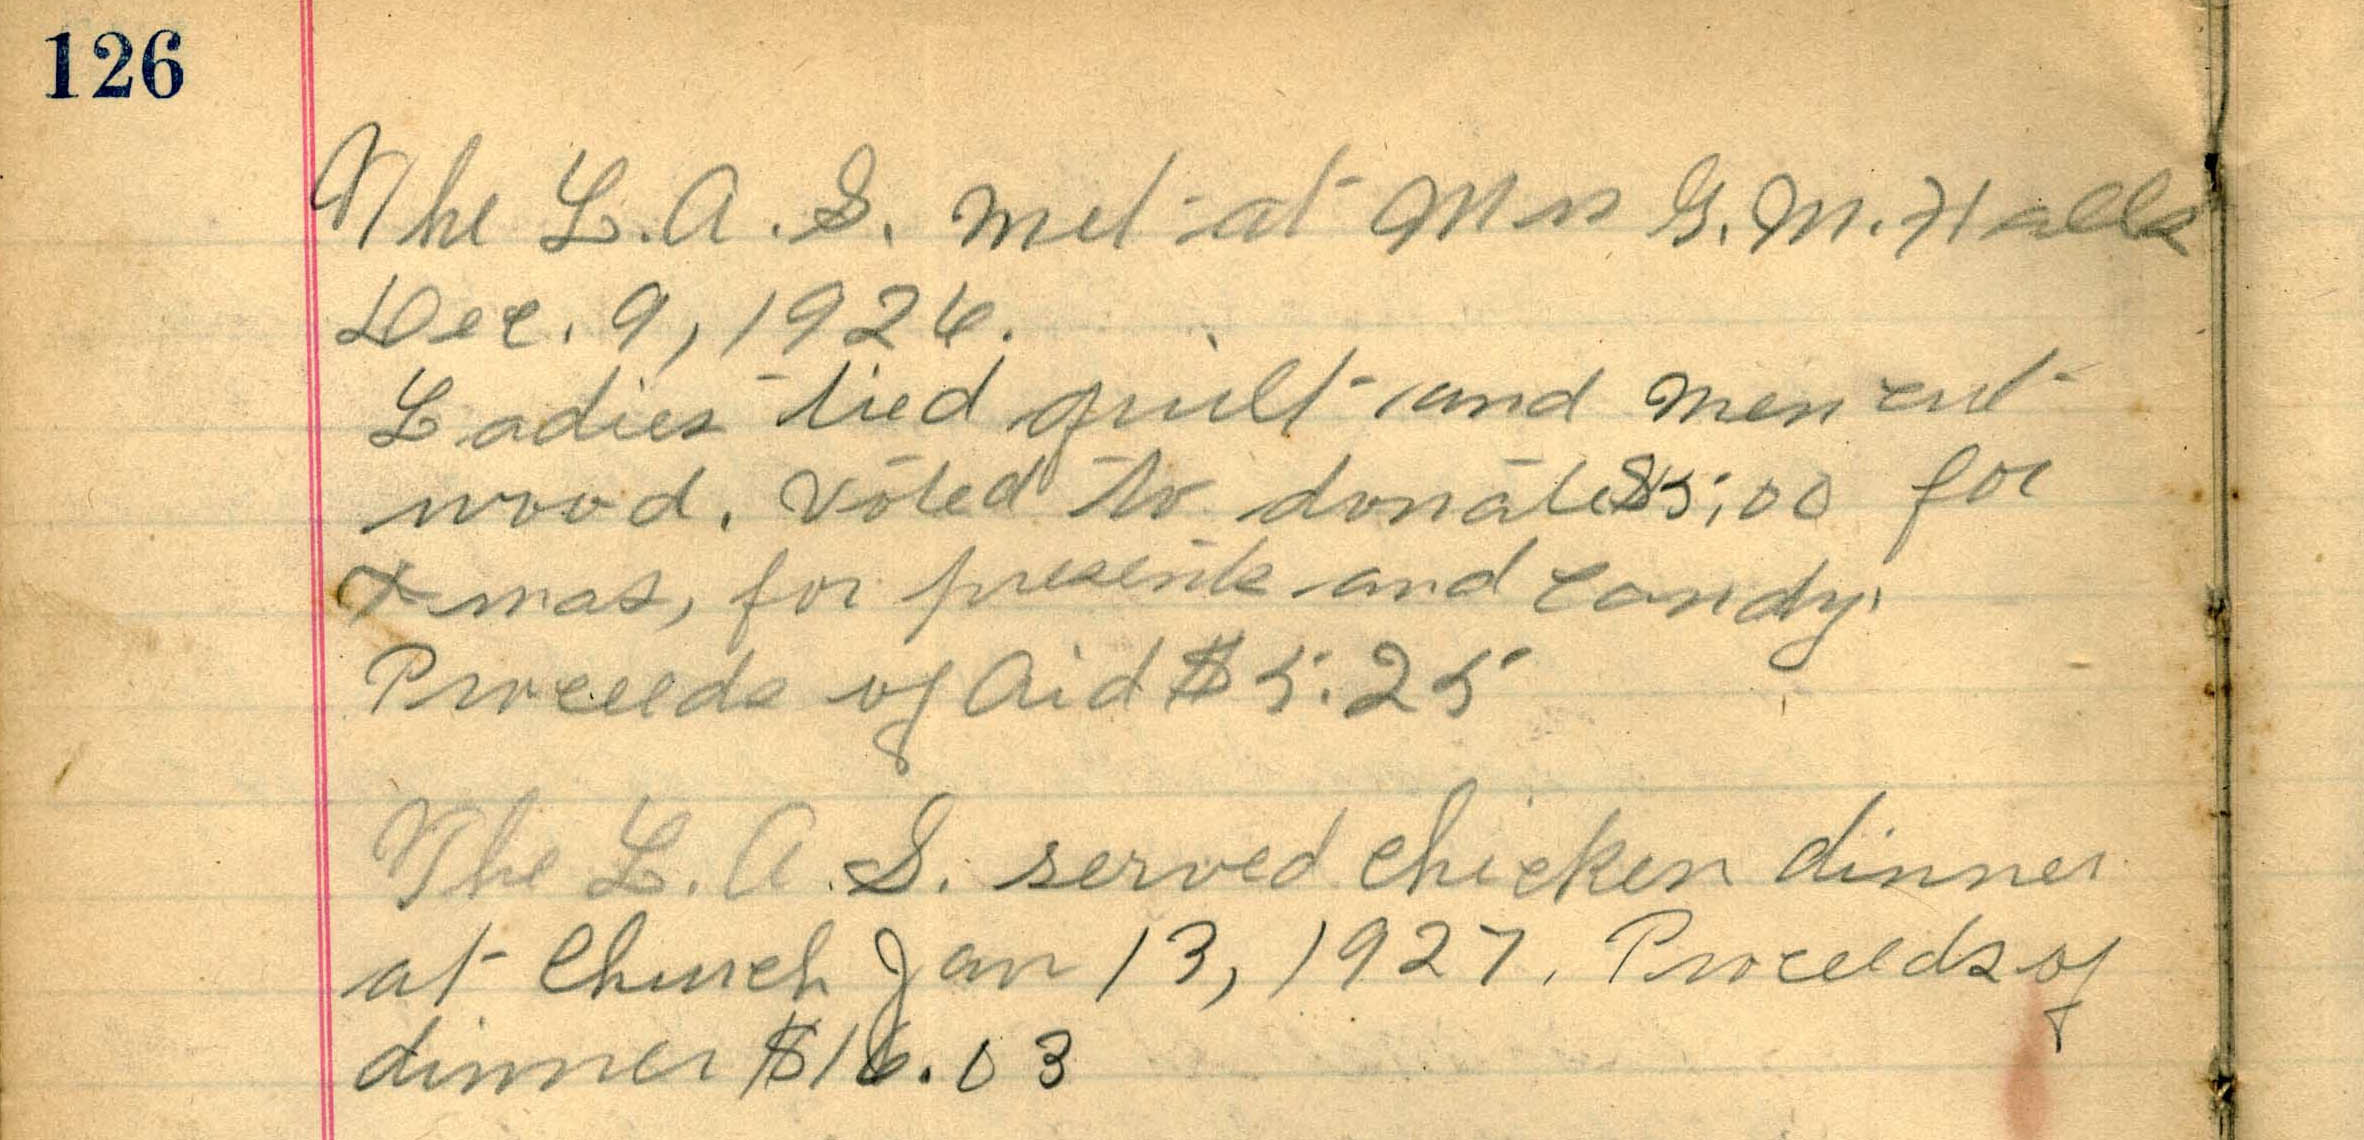 126
The L.A.S. met at Mrs G.M. Halls
Dec. 9, 1926.
Ladies tied quilt and men cut
wood. Voted to donate $5.00 for
Xmas, for presents and candy.
Proceeds of Aid $5.25
The L.A.S. served chicken dinner
at Church Jan 13, 1927. Proceeds of
dinner $16.03